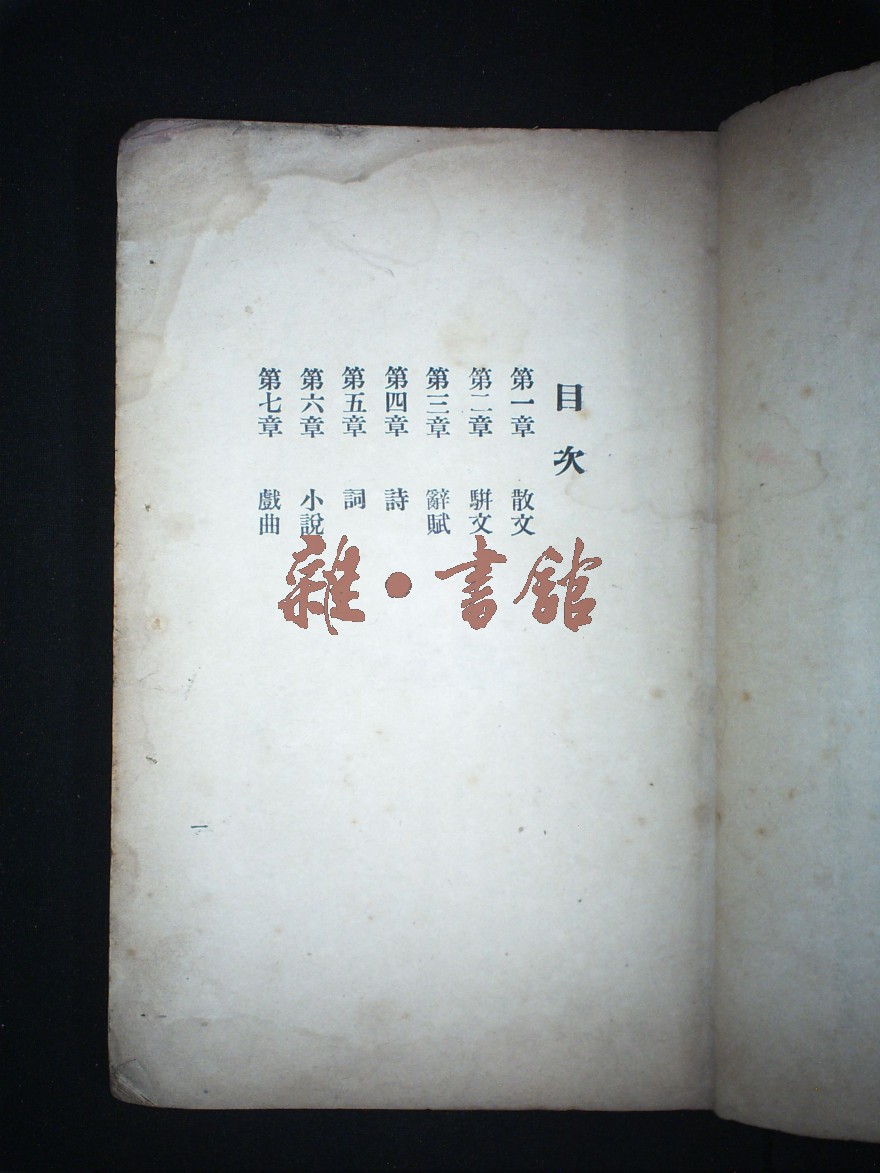 目次
第一章 散文
第二章 駢文
第三章 辭賦
第四章 詩
第五章 詞
第六章 小說
第七章 戲曲
一
雜·書館